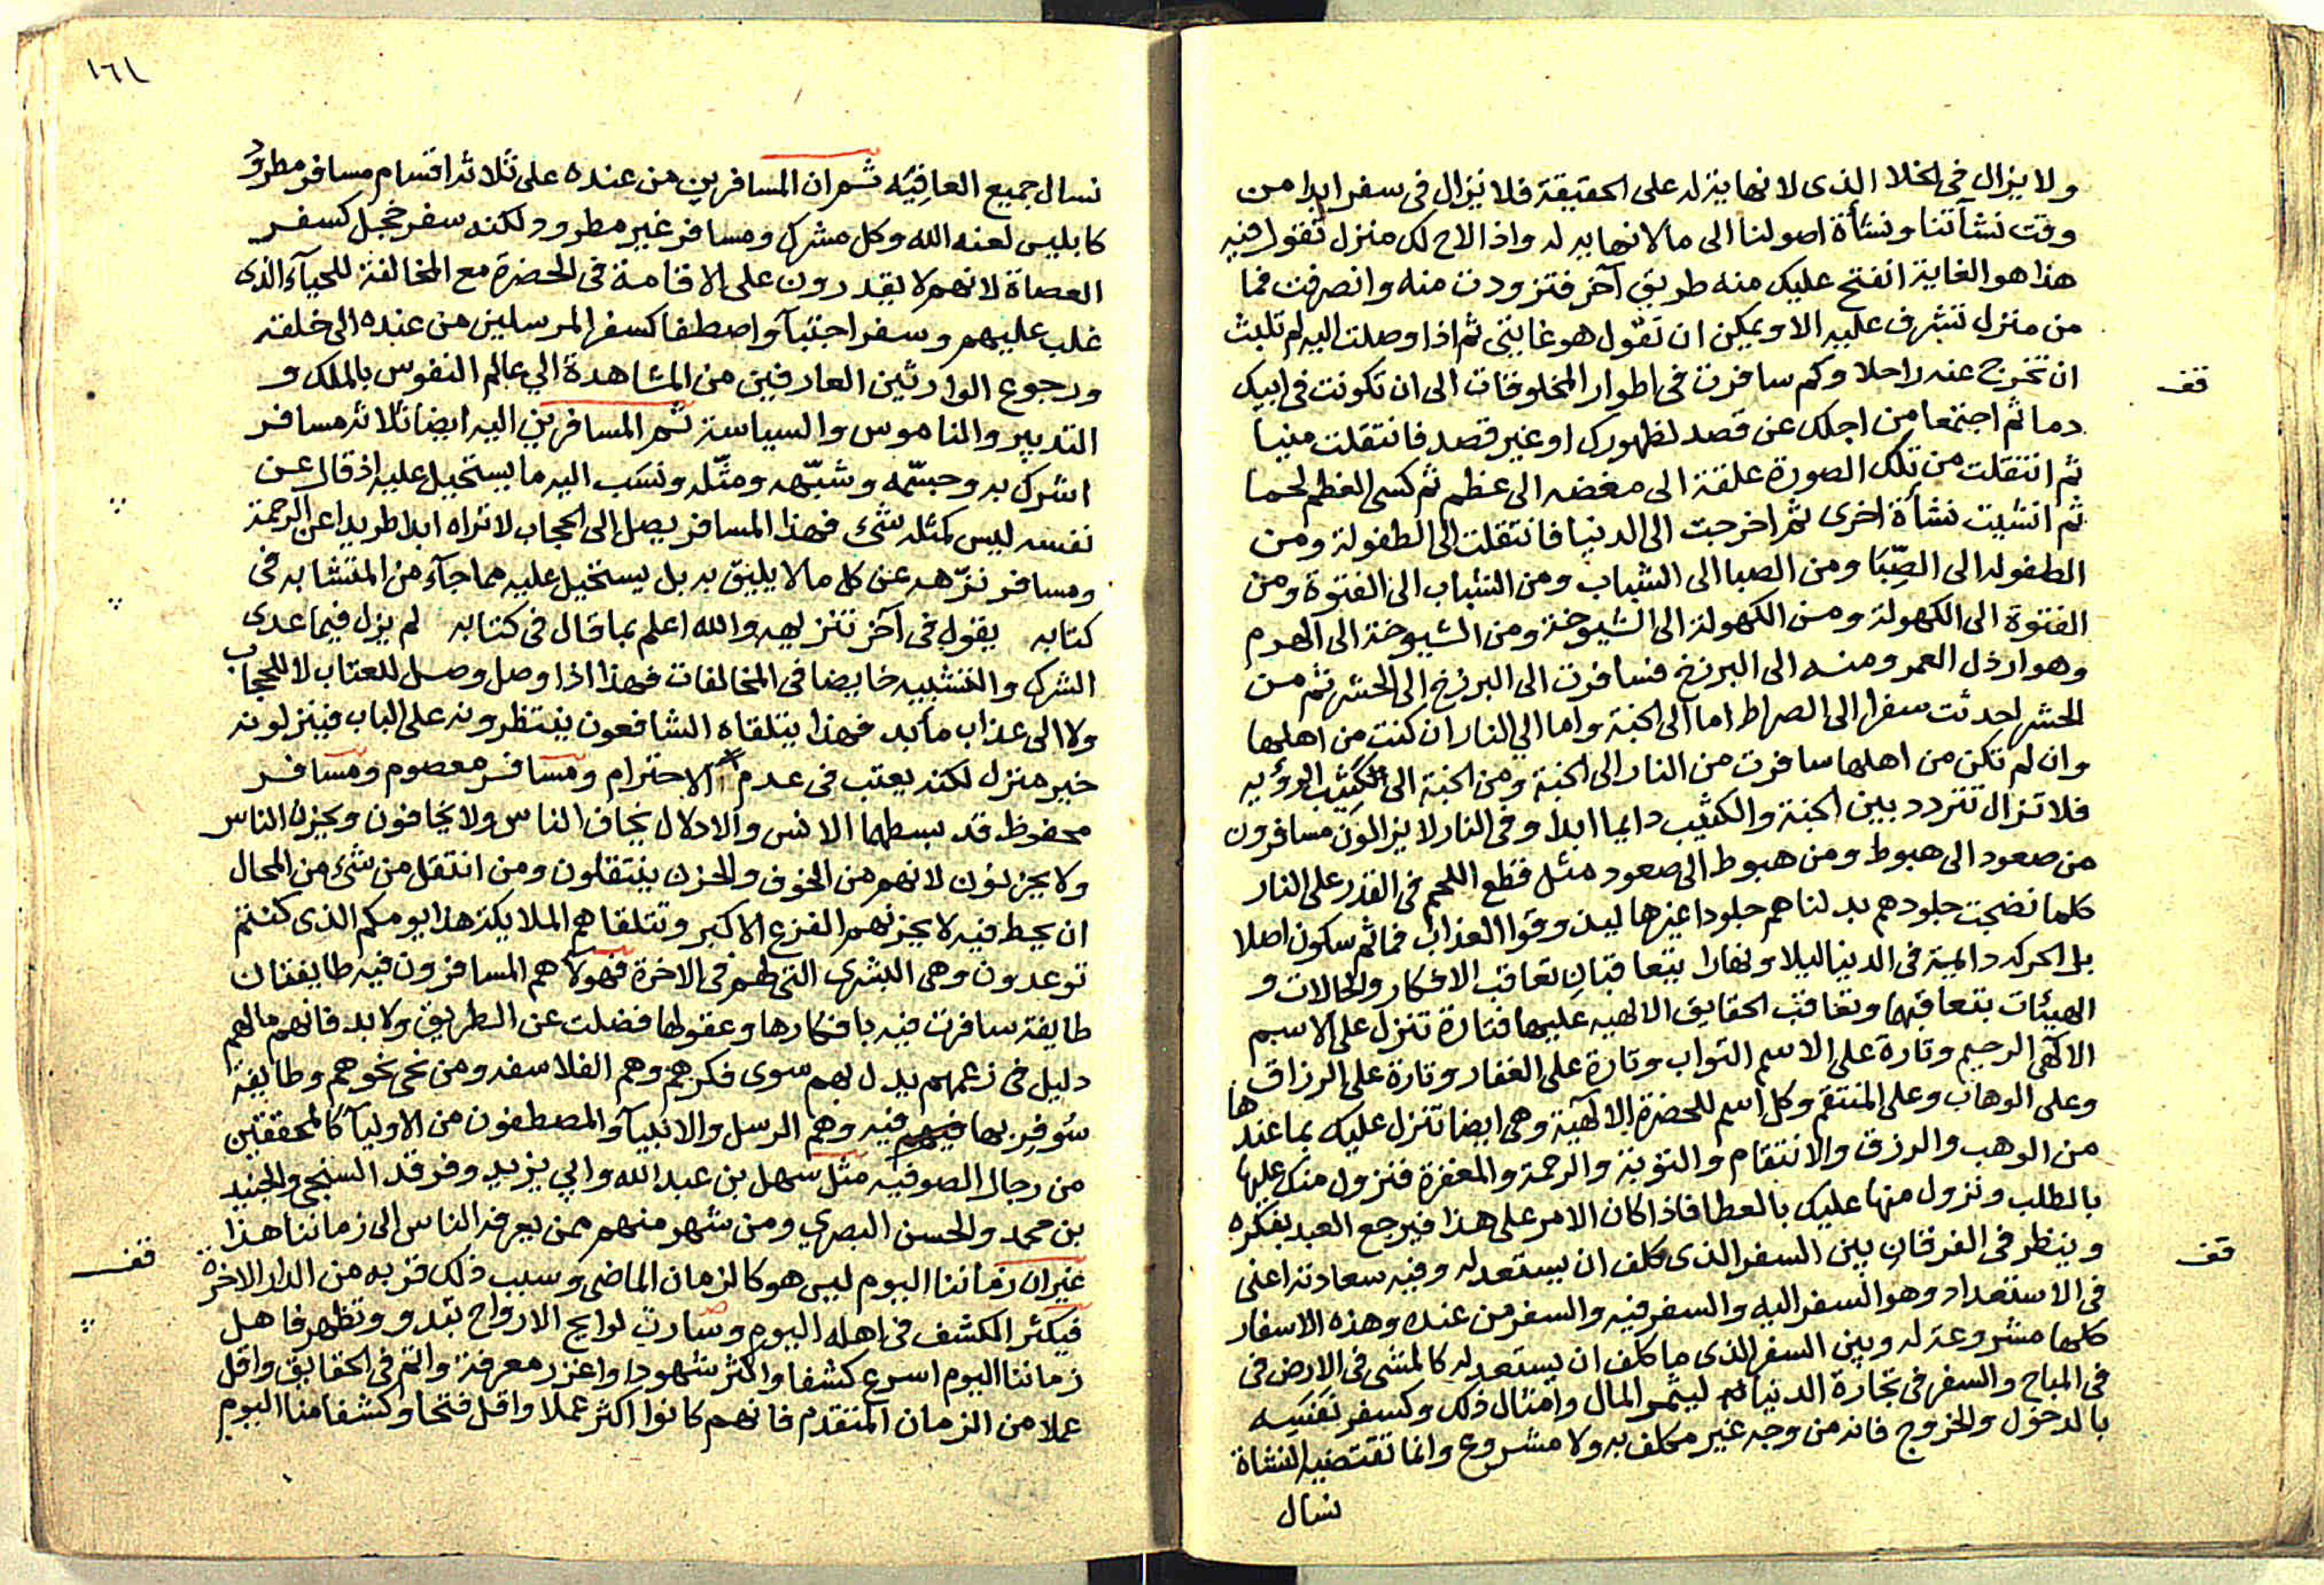 ولا يزال في الخلا الذى لا نهاية له على الحقيقة فلا نزال في سفر ابدا من
وقت نشأتنا ونشأة اصولنا الى مالانهايه له واذا لاح لك منزل تقول فيه
هذا هو الغاية انفتح عليك منه طريق آخر فتزودت منه وانصرفت فما
من منزل تشرف عليه الا ويمكن ان تقول هو غايتى ثم اذا وصلت اليه لم تلبث
ان تخرج عنه راحلا وكم سافرت في اطوار المخلوقات الى ان تكونت في ابيك
قف
دما ثم اجتمعا من اجلك عن قصد لظهورك او غير قصد فانتقلت منيا
ثم انتقلت من تلك الصورة علقة الى مغضه الى عظم ثم كسى العظم لحما
ثم انشيت نشأة اخرى ثم اخرجت الى الدنيا فانتقلت الى الطفولة ومن
الطفوله الى الصِّبَا ومن الصبا الى الشباب ومن الشباب الى الفتوة ومن
الفتوة الى الكهولة ومن الكهولة الى الشيوخة ومن الشيوخة الى الهرم
وهو ارذل العمر ومنه الى البرزخ فسافرت الى البرزخ الى الحشر ثم من
الحشر احدثت سفرا الى الصراط اما الى الجنة واما الي النار ان كنت من اهلها
وان لم تكن من اهلها سافرت من النار الى الجنة ومن الجنة الى الكثيب الرؤيه
فلا تزال تتردد بين الجنة والكثيب دايما ابدا وفي النار لا يزالون مسافرون
من صعود الى هبوط ومن هبوط الى صعود مثل قطع اللحم في القدر على النار
كلما نضجت جلودهم بدلناهم جلودا غيرها ليذوقوا العذاب فماثم سكون اصلا
بل الحركه دايمة في الدنيا ليلا ونهارا يتعاقبان تعاقب الافكار والحالات و
الهيئات بتعاقبها وتعاقب الحقايق الالهيه عليها فتارة تنزل على الاسم
الالهى الرحيم وتارة على الاسم التواب وتارة على الغفار وتارة على الرزاق
وعلى الوهاب وعلى المنتقم وكل اسم للحضرة الالهية وهى ايضا تنزل عليك بما عندها
من الوهب والرزق والانتقام والتوبة والرحمة والمغفرة فنزول منك عليها
بالطلب ونزول منها عليك بالعطا فاذا كان الامر على هذا فيرجع العبد بفكره
وينظر في الفرقان بين السفر الذى كلف ان يستعد له وفيه سعادته اعنى
قف
في الاستعداد وهو السفر اليه والسفر فيه والسفر من عنده وهذه الاسفار
كلها مشروعة له وبين السفر الذى ما كلف ان يستعد له كالمشى في الارض في
في المباح والسفر في تجارة الدنيا ليثمر المال وامثال ذلك وكسفر نفسه
بالدخول والخروج فانه من وجه غير مكلف به ولا مشروع وانما تقتضيه النشاة
نسال
١٦١
نسال جميع العافيه ثم ان المسافرين من عنده على ثلاثة اقسام مسافر مطرود
كابليس لعنه الله وكل مشرك ومسافر غير مطرود ولكنه سفر خجل كسفر
العصاة لانهم لا يقدرون على الاقامة في الحضرة مع المخالفة للحيآء الذى
غلب عليهم وسفر اجتبآ واصطفا كسفر المرسلين من عنده الى خلقه
ورجوع الوارثين العارفين من المشاهدة الي عالم النفوس بالملك و
التدبير والناموس والسياسة ثم المسافرين اليه ايضا ثلاثه مسافر
اشرك به وجسّمه وشبّهه ومثّله ونسَب اليه ما يستحيل عليه اذ قال عن
نفسه ليس كمثله شئ فهذا المسافر يصل الى الحجاب لا تراه ابدا طريدا عن الرحمة
ومسافر نزّهه عن كل ما لا يليق به بل يستحيل عليه مما جآء من المتشابه في
كتابه يقول في آخر تنزيهه والله اعلم بما قال في كتابه لم يزل فيما عدى
الشرك والتشبيه خايضا في المخالفات فهذا اذا وصل وصل للعتاب لا للحجاب
ولا الى عذاب مأبد فهذا يتلقاه الشافعون ينتظرونه على الباب فينزلونه
خير منزل لكنه يعتب في عدم الاحترام ومسافر معصوم ومسافر
محفوظ قد بسطهما الانس والادلال يخاف الناس ولا يخافون ويحزن الناس
ولا يحزنون لانهم من الخوف والحزن ينتقلون ومن انتقل من شئ من المحال
ان يحط فيه لا يحزنهم الفزع الاكبر وتتلقاهم الملايكة هذا يومكم الذى كنتم
توعدون وهى البشرى التى لهم في الاخرة فهولاء هم المسافرون فيه طايفتان
طايفة سافرت فيه بافكارها وعقولها فضلت عن الطريق ولا بد فانهم مالهم
دليل في زعمهم يدل بهم سوى فكرهم وهم الفلاسفه ومن نحى نحوهم وطايفة
سُوفِر بها فيه وهم الرسل والانبيآ والمصطفون من الاوليآ كالمحققين
من رجال الصوفيه مثل سهل بن عبد الله وابي يزيد وفرقد السنجى والجنيد
بن محمد والحسن البصري ومن شهر منهم ممن يعرفه الناس الى زماننا هذا
غير ان زماننا اليوم ليس هو كالزمان الماضى وسبب ذلك قربه من الدار الاخرة
قف
فيكثر الكشف في اهله اليوم وصارت لوايح الارواح تبدو وتظهر فاهل
زماننا اليوم اسرع كشفا واكثر شهودا واغزر معرفة واتم في الحقايق واقل
عملا من الزمان المتقدم فانهم كانوا اكثر عملا واقل فتحا وكشفا منا اليوم